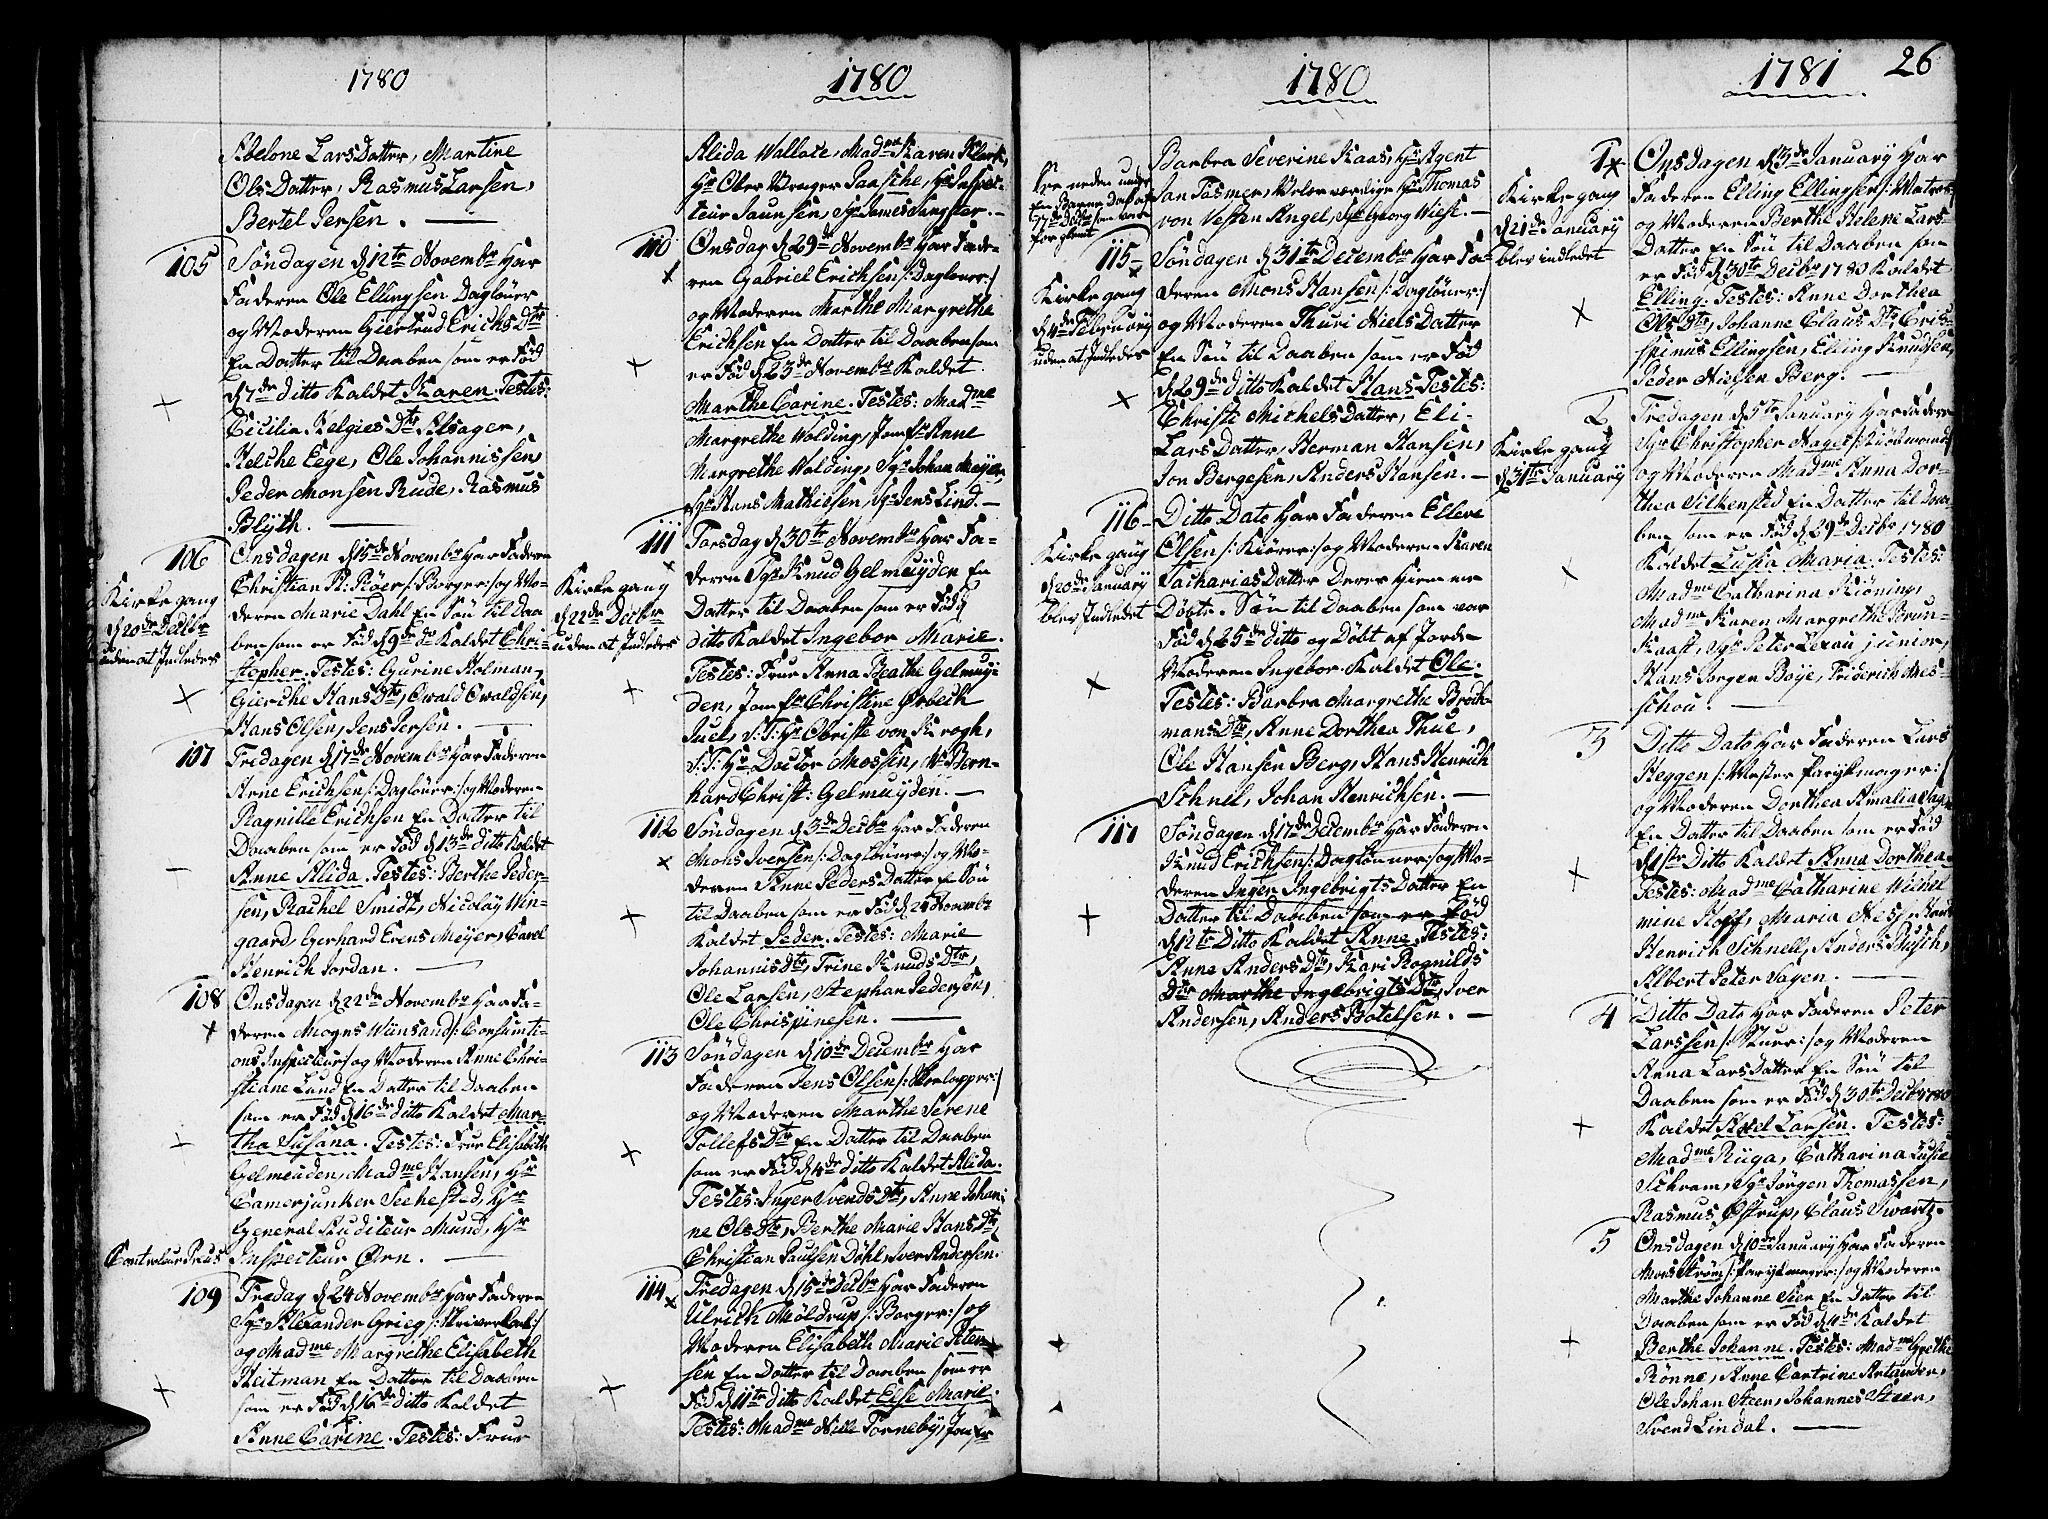 1780
Abelone Lars Datter, Martine
Ols Datter, Rasmus Larsen,
Bertel Jersen.
105
Søndagen d 12te Novembr Har
Faderen Ole Ellingsen Dagløner
og Moderen Giertrud Erichs Dtr
En Datter til Daaben som er Fød
d 7de ditto Kaldet Karen. Testes:
Cicilia Helgies Dtr Alsager,
Helche Eege, Ole Johannissen,
Peder Monsen Rude, Rasmus
Blyth.
106
Onsdagen d 15de Novembr Har Faderen
Christian P: Röer /: Borger :/ og Mo-
deren Marie Dahl En Søn til Daa
ben som er Fød d 9de do Kaldet Chri-
stopher. Testes: Gurine Holman,
Gierche Hans Dtr, Ewald Ewaldsen,
Hans Olsen, Jens Jersen.
Kirke gang
d 20de Decbr
uden at Indledes
107
Fredagen d 17de Novembr Har Faderen
Arne Erichsen /: Dagløner :/ og Moderen
Ragnille Erichsen En Datter til
Daaben som er Fød d 13de ditto Kaldet
Anne Alida. Testes: Berthe Peder-
sen, Rachel Smidt, Nicolay Win-
gaard, Gerhard Erens Meyer, Carel
Henrich Jordan.
108
Onsdagen d 22de Novembr Har Fa-
deren Mogns Wünsand /: Consumti-
ons Inspecteur :/ og Moderen Anne Chri-
stiane Lund En Datter til Daaben
som er Fød d 16de ditto Kaldet Mar-
tha Susana. Testes: Frue Elisabeth
Gelmeuden, Madme Hansen, Hr
Camerjunker Seehested, Hr
General Auditeur Mund, Hr
Inspecteur Ørn.
Controleur Prus
109
Fredag d 24 Novembr Har Faderen
Sgr Alexander Grieg /:
og Madme Margrethe Elisabeth
Heitman En Datter til Daaben
som er Fød d 16de ditto Kaldet
Anne Carine. Testes: Frue
1780
Alida Wallace, Madme Karen
Hr Ober Vrager Paasche, Hr Inspec-
teur Jaunsen, Sgr James Sangster.
110
Onsdag d 29de Novembr Har Fade-
ren Gabriel Erichsen /: Dagløner :/
og Moderen Marthe Margrethe
Erichsen En Datter til Daaben som
er Fød d 23de Novembr Kaldet.
Marthe Carine. Testes: Madme
Margrethe Wolding, Jomfr Anne
Margrethe Wolding, Sgr Johan Meyer,
Sgr Hans Mathiesen, Sgr Jens Lind.
111
Torsdag d 30te Novembr Har Fa-
deren Sgr Knud Gelmuyden En
Datter til Daaben som er Fød d
ditto Kaldet Ingebor Marie.
Testes: Frue Anna Beathe Gelmuy-
den, Jomfr Christine Ørbech
Juel, S:T: Hr Obriste von Krogh,
S:T: Hr Doctor Mossin, Mr Bern-
hard Christ: Gelmuyden.
Kirke gang
d 22de Decbr
uden at Indledes
112
Søndagen d 3de Decbr Har Faderen
Mons Iversen /: Dagløner :/ og Mo-
deren Anne Peders Datter En Søn
til Daaben som er Fød d 24 Novembr
Kaldet Peder. Testes: Marie
Johannis Dtr, Trine Knuds Dtr,
Ole Larsen, Stephan Pedersen,
Ole Chrispinesen.
113
Søndagen d 10de Decembr Har
Faderen Jens Olsen /: Skolapper :/
og Moderen Marthe Serene
Tollefs Dtr En Datter til Daaben
som er Fød d 4de ditto Kaldet Alida.
Testes: Inger Svends Dtr, Anne Johan-
ne Ols Dtr, Berthe Marie Hans Dtr,
Christian Paulsen Döhl, Iver Andersen.
114
Fredagen d 15de Decbr Har Faderen
Ulrich Møldrup /: Borger :/ og
Moderen Elisabeth Marie Peter-
sen En Datter til Daaben som er
Fød d 11te ditto Kaldet Else Marie.
Testes: Madme Nille Torneby, Jomfr
1780
Barbra Severine Kaas, Hr Agent
Jan Tasmer, Velærværdige Hr Thomas
von Vestan Angel, Sgr Georg Wiese.
See neden under
En Barne Daab af
17de Decbr som var
forglemt
115
Søndagen d 31te Decembr Har Fa-
deren Mons Hansen /: Dagløner :/
og Moderen Thuri Niels Datter
En Søn til Daaben som er Fød
d 29de ditto Kaldet Hans Testes:
Christi Michels Datter, Eli-
Lars Datter, Herman Hansen,
Jon Bergesen, Anders Hansen.
Kirke gang
d 4de February
uden at Indledes
116
Ditto Dato Har Faderen Elleve
Olsen /: Kiører :/ og Moderen Karen
Zacharias Datter Derer Hiem me
Døbte. Søn til Daaben som var
Fød d 25de ditto og Døbt af Jorde-
Moderen Ingebor Kaldet Ole.
Testes: Barbra Margrethe Brock-
mans Dtr, Anne Dorthea Thue,
Ole Hansen Berg, Hans Henrich
Schnel, Johan Henrichsen.
Kirke gang
d 20de January
blev Indledet
117
Søndagen d 17de Decembr Har Faderen
Knud Erichsen /: Dagløner :/ og Mo-
deren Inger Ingebrigts Datter En
Datter til Daaben som er Fød
d 12te Ditto Kaldet Anne, Testes:
Anne Anders Dtr, Kari Rognilds
Dtr Marthe Ingebrigts Dtr, Iver
Andersen, Anders Botelsen.
1781
26
1
Onsdagen d 3de January Har
Faderen Elling Ellingsen /: Matros :/
og Moderen Berthe Helene Lars-
Datter En Søn til Daaben som
er Fød d 30te Decbr 1780 Kaldet
Elling. Testes: Anne Dorthea
Ols Dtr, Johanne Claus Dtr, Cris-
spinus Ellingsen, Elling Knudsen,
Peder Nielsen Berg.
Kirke gang
d 21de January
blev indledet
2
Fredagen d 5te January Har Faderen
Sgr Christopher Hager /: Kiøbmand :/
og Moderen Madme Anna Dor-
thea Silkensted En Datter til Daa-
ben som er Fød d 29de Decbr 1780
Kaldet Lusia Maria. Testes:
Madme Catharina Kiöning,
Madme Karen Margrethe Brun-
Kaast, Sgr Peter Lexau junior,
Hans Jorgen Boye, Friderich Mes-
schou.
Kirke gang
d 31te January
3
Ditto Dato Har Faderen Lars
Heggen /: Mester Parykmager :/
og Moderen Dorthea Amalia
En Datter til Daaben som er Fød
d 1ste Ditto Kaldet Anna Dorthea.
Testes: Madme Catharine Wichel
mine Hoff, Maria
Henrich Schnell, Anders Busch,
Albert Peter Vagen.
4
Ditto Dato Har Faderen Peter
Larssen /: :/ og Moderen
Anna Lars Datter En Søn til
Daaben som er Fød d 30te Decbr 1780
Kaldet Axel Larsen. Testes:
Madme Ruga, Catharina Lusie
Schram, Sgr Jörgen Thomassen,
Rasmus Østrup, Claus Swartz.
5
Onsdagen d 10de January Har Faderen
Mons Strøm /: Parykmager :/ og Moderen
Marthe Johanne Sier En Datter til
Daaben som er Fød d 4de Kaldet
Berthe Johanne. Testes: Madme Grethe
Rönne, Anne Cartrine
Ole Johan Steen, Johannes Steen,
Svend Lindal.